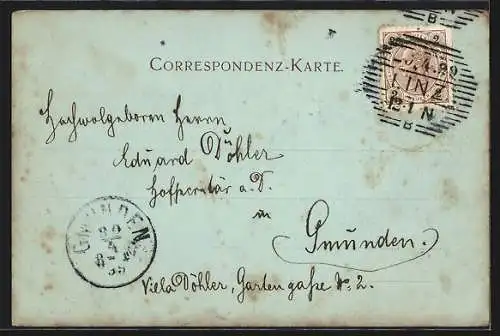 CORRESPONDENZ-KARTE.
LINZ
B
Hochwolgeboren Herrn
Eduard Döhler
Hofsecretär a. D.
in
Gmunden.
Villa Döhler, Gartengaße No. 2.
GMUNDEN